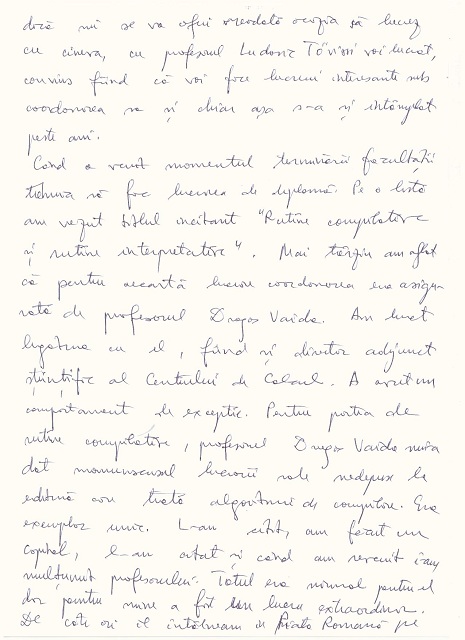 dacă mi se va oferi vreodată ocazia să lucrez
cu cineva, cu profesorul Ludovic Tövissi voi lucra,
convins fiind că voi face lucruri interesante sub
coordonarea sa și chiar așa s-a și întâmplat
peste ani.
Când a venit momentul terminării facultății
trebuia să fac lucrarea de diplomă. Pe o listă
am văzut titlul incitant "Rutine compilative
și rutine interpretative". Mai târziu am aflat
că pentru această lucrare coordonarea era asigu-
rată de profesorul Dragoș Vaida. Am luat
legătura cu el, fiind și director adjunct
științific al Centrului de Calcul. A avut un
comportament de excepție. Pentru partea de
rutine compilative, profesorul Dragoș Vaida mi-a
dat manuscrisul lucrării sale nedepusă la
editură care trata algoritmii de compilare. Era
exemplar unic. L-am citit, am făcut un
capitol, l-am and când am revenit i-am
mulțumit profesorului. Totul era normal pentru el
dar pentru mine a fost un lucru extraordinar.
De câte ori îl întâlneam în Piața Romană pe